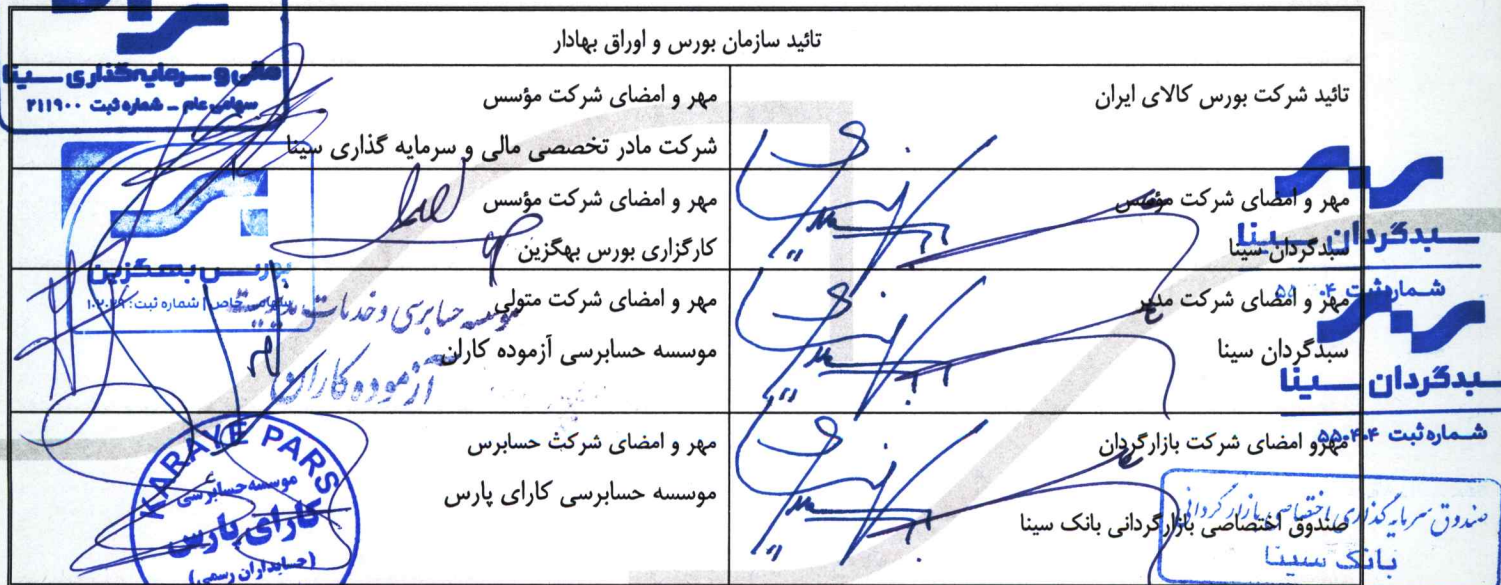 تائید سازمان بورس و اوراق بهادار
تائید شرکت بورس کالای ایران
مهر و امضای شرکت مؤسس
شرکت مادر تخصصی مالی و سرمایه گذاری سینا
مهر و امضای شرکت مؤسس
سبدگردان سینا
مهر و امضای شرکت مؤسس
کارگزاری بورس بهگزین
مهر و امضای شرکت مدیر
سبدگردان سینا
مهر و امضای شرکت متولی
موسسه حسابرسی آزموده کاران
مهرو امضای شرکت بازارگردان
صندوق اختصاصی بازارگردانی بانک سینا
مهر و امضای شرکت حسابرس
موسسه حسابرسی کارای پارس
مالی و سرمایه‌گذاری سینا
سهامی عام - شماره ثبت ۲۱۱۹۰۰
بورس بهگزین
سهامی خاص | شماره ثبت:
موسسه حسابرسی و خدمات مدیریت
آزموده کاران
KARAYE PARS
موسسه حسابرسی
کارای پارس
(حسابداران رسمی)
سبدگردان سینا
شماره ثبت
سبدگردان سینا
شماره ثبت ۵۵۰۴۰۴
صندوق سرمایه گذاری اختصاصی بازارگردانی
بانک سینا